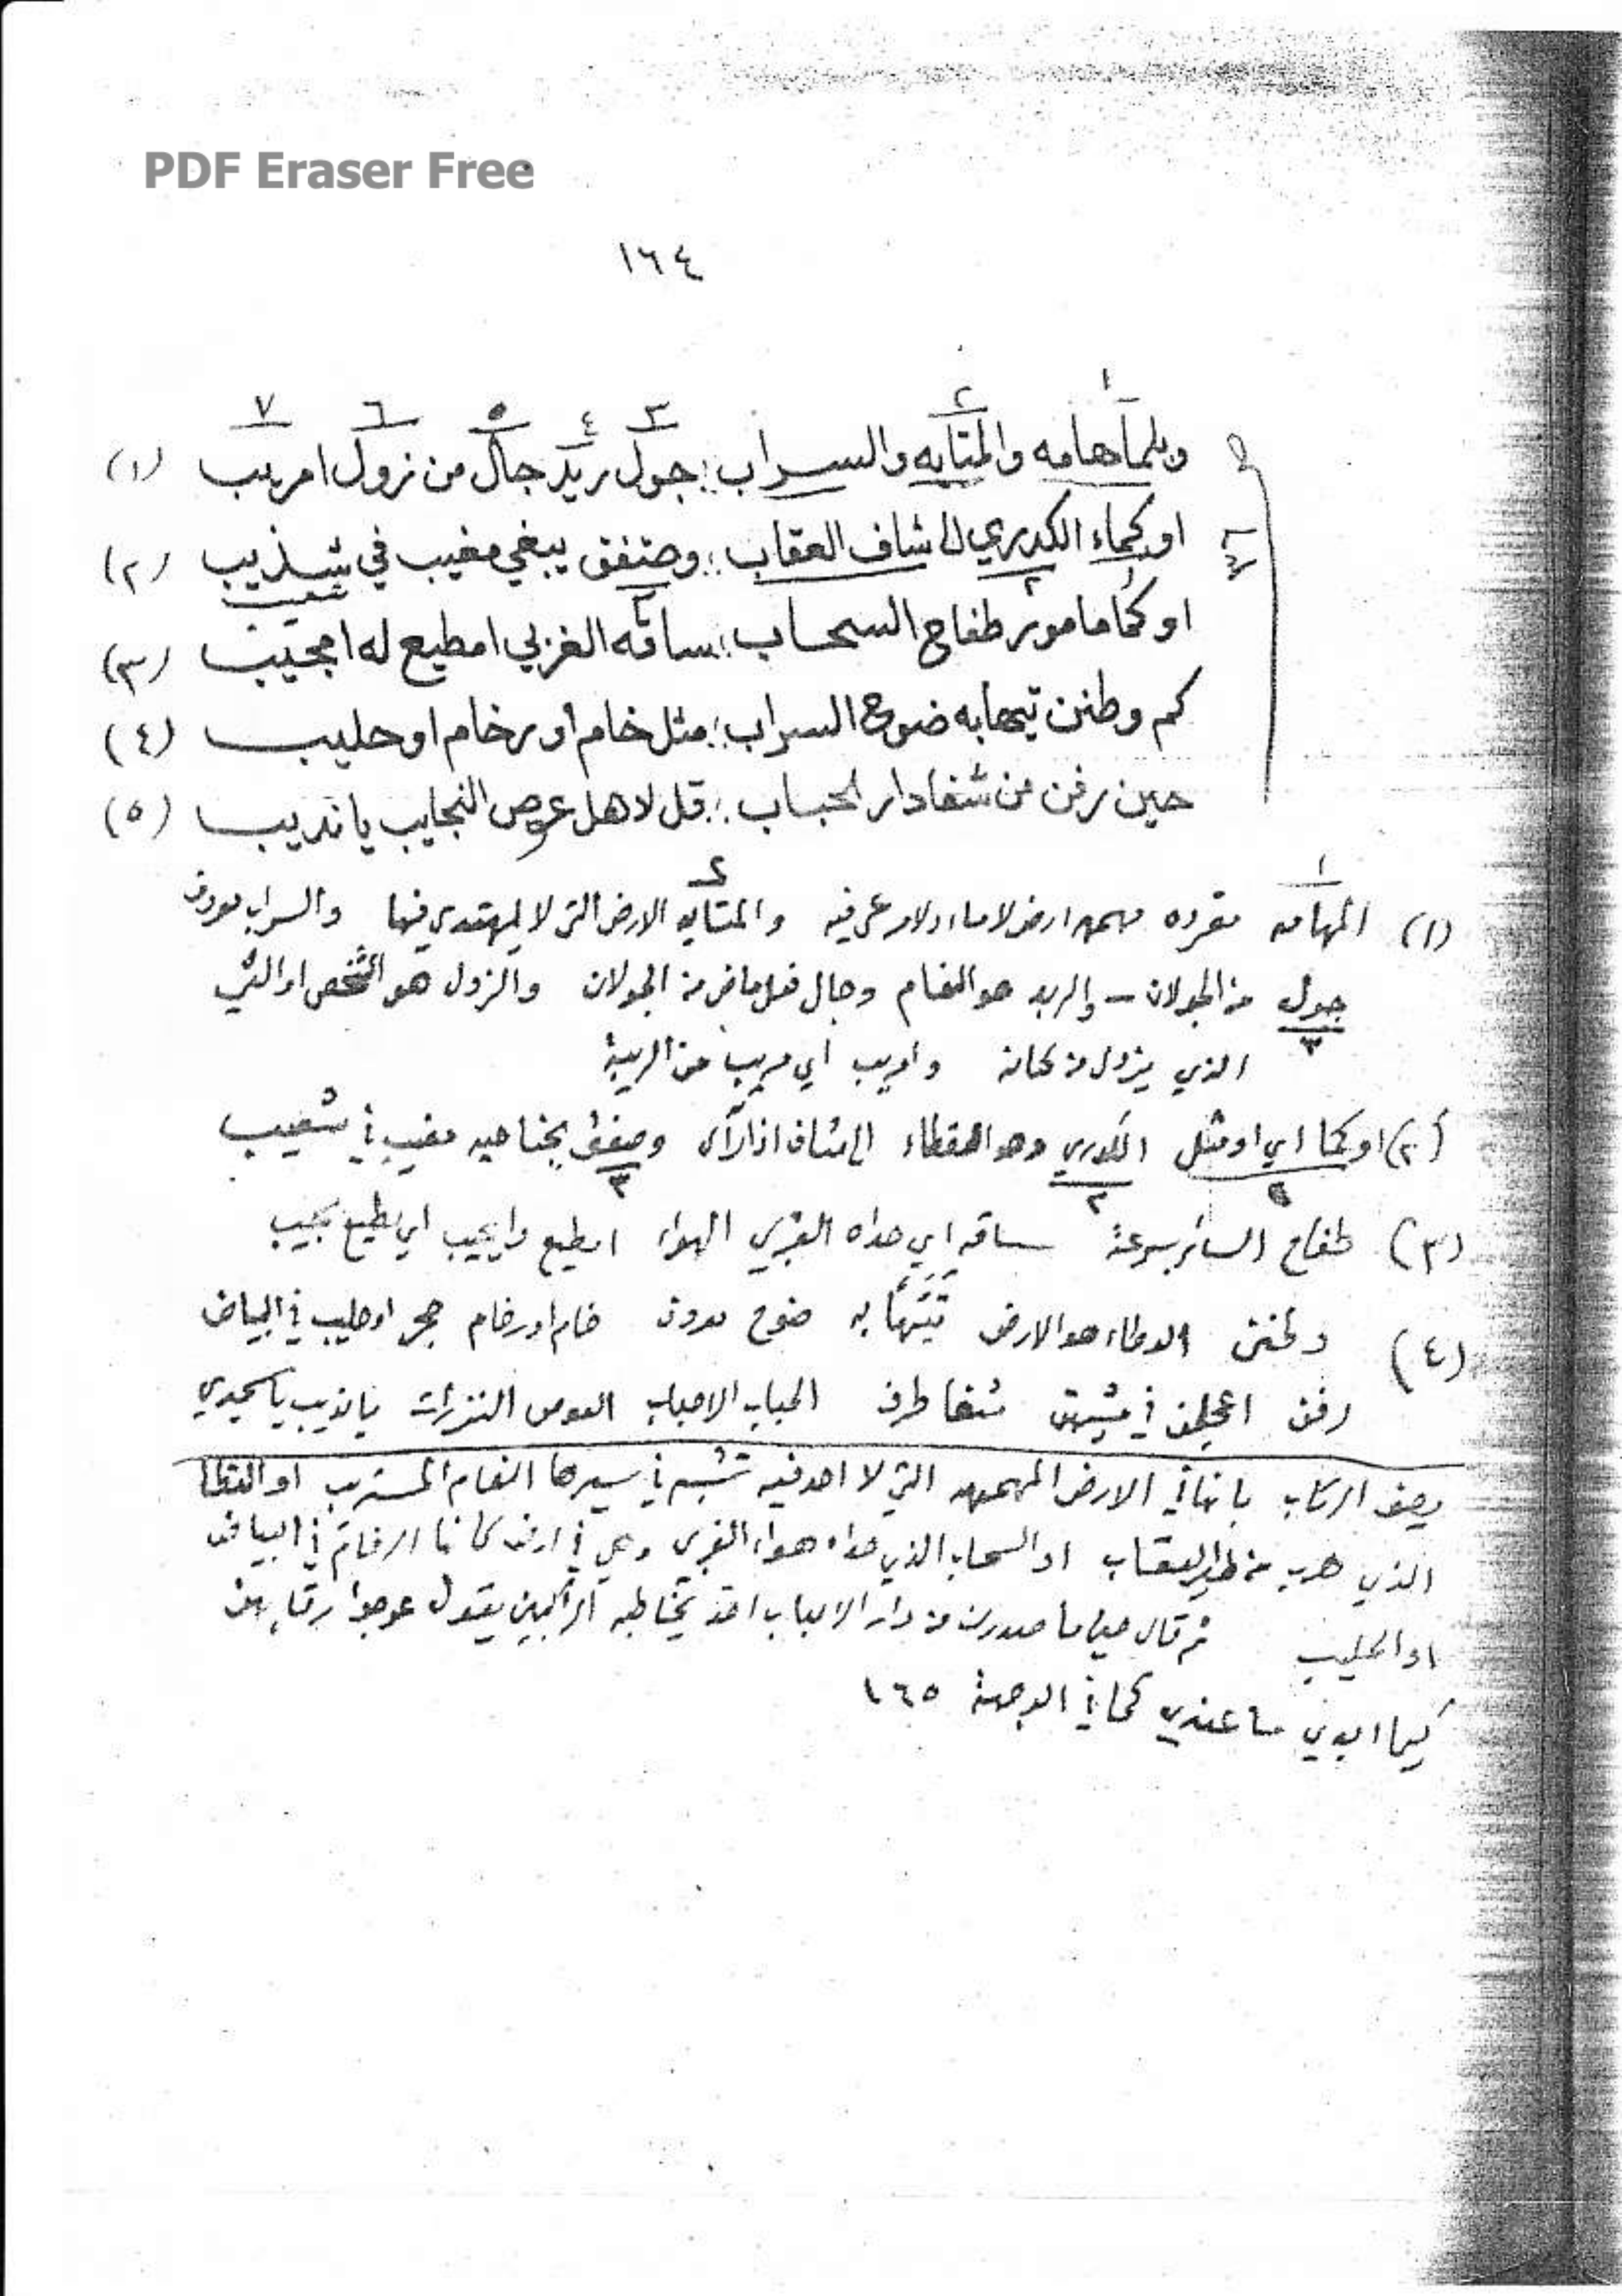 PDF Eraser Free
١٦٤
١ ٢ ٣ ٤ ٥ ٦ ٧
والمتايه والسراب ؛ جول ربد جال من زول امريب (١)
او كماء الكدري لا شاف العقاب ؛ وصتفق يبغي مغيب في شذيب (٢)
شعيب
او كما مامور طفاح السحاب ؛ ساقه الغربي امطيع له امجيب (٣)
كم وطنن تيهابه ضوح السراب ؛ مثل خام أو رخام او حليب (٤)
حين رفن من شفا دار لحباب ؛ قل لاهل عوص النجايب يا نديب (٥)
(١) المهامه مفرده مهمه ارض لا ماء ولا مرعى فيه والمتايه الارض التي لا يهتدي فيها والسراب معروف
جول من الجولان – والربد هو النعام وجال فعل ماض من الجولان والزول هو الشخص او الشي
الذي يزول من مكانه وامريب اي مريب من الريبة
(٢) او كما اي او مثل الكدري وهو القطاء الى شاف اذا رآى وصفق بجناحيه مغيب في شعيب
(٣) طفاح السائر بسرعة ساقه اي حداه الغربي الهواء امطيع وامجيب اي مطيع مجيب
(٤) وطنن الوطاء هو الارض تيتهابه ضوح معروف خام او رخام حجر او حليب في البياض
رفن اعجلن في مشيهن شفا طرف الحباب الاحباب العوص يا نديب يا
يصف الركاب بانها في الارض المهمهه التي لا احد فيه تشبه في سيرها النعام المستريب او القطا
الذي هرب من طير العقاب او السحاب الذي حداه هواء الغربي وهي في ارض كانها الرخام في البياض
او الحليب ثم قال حينما صدرن من دار الاحباب اخذ يخاطب الراكبين يقول عوجوا رقابهن
كيما ابدي ما عندي كما في الوجهة ١٦٥